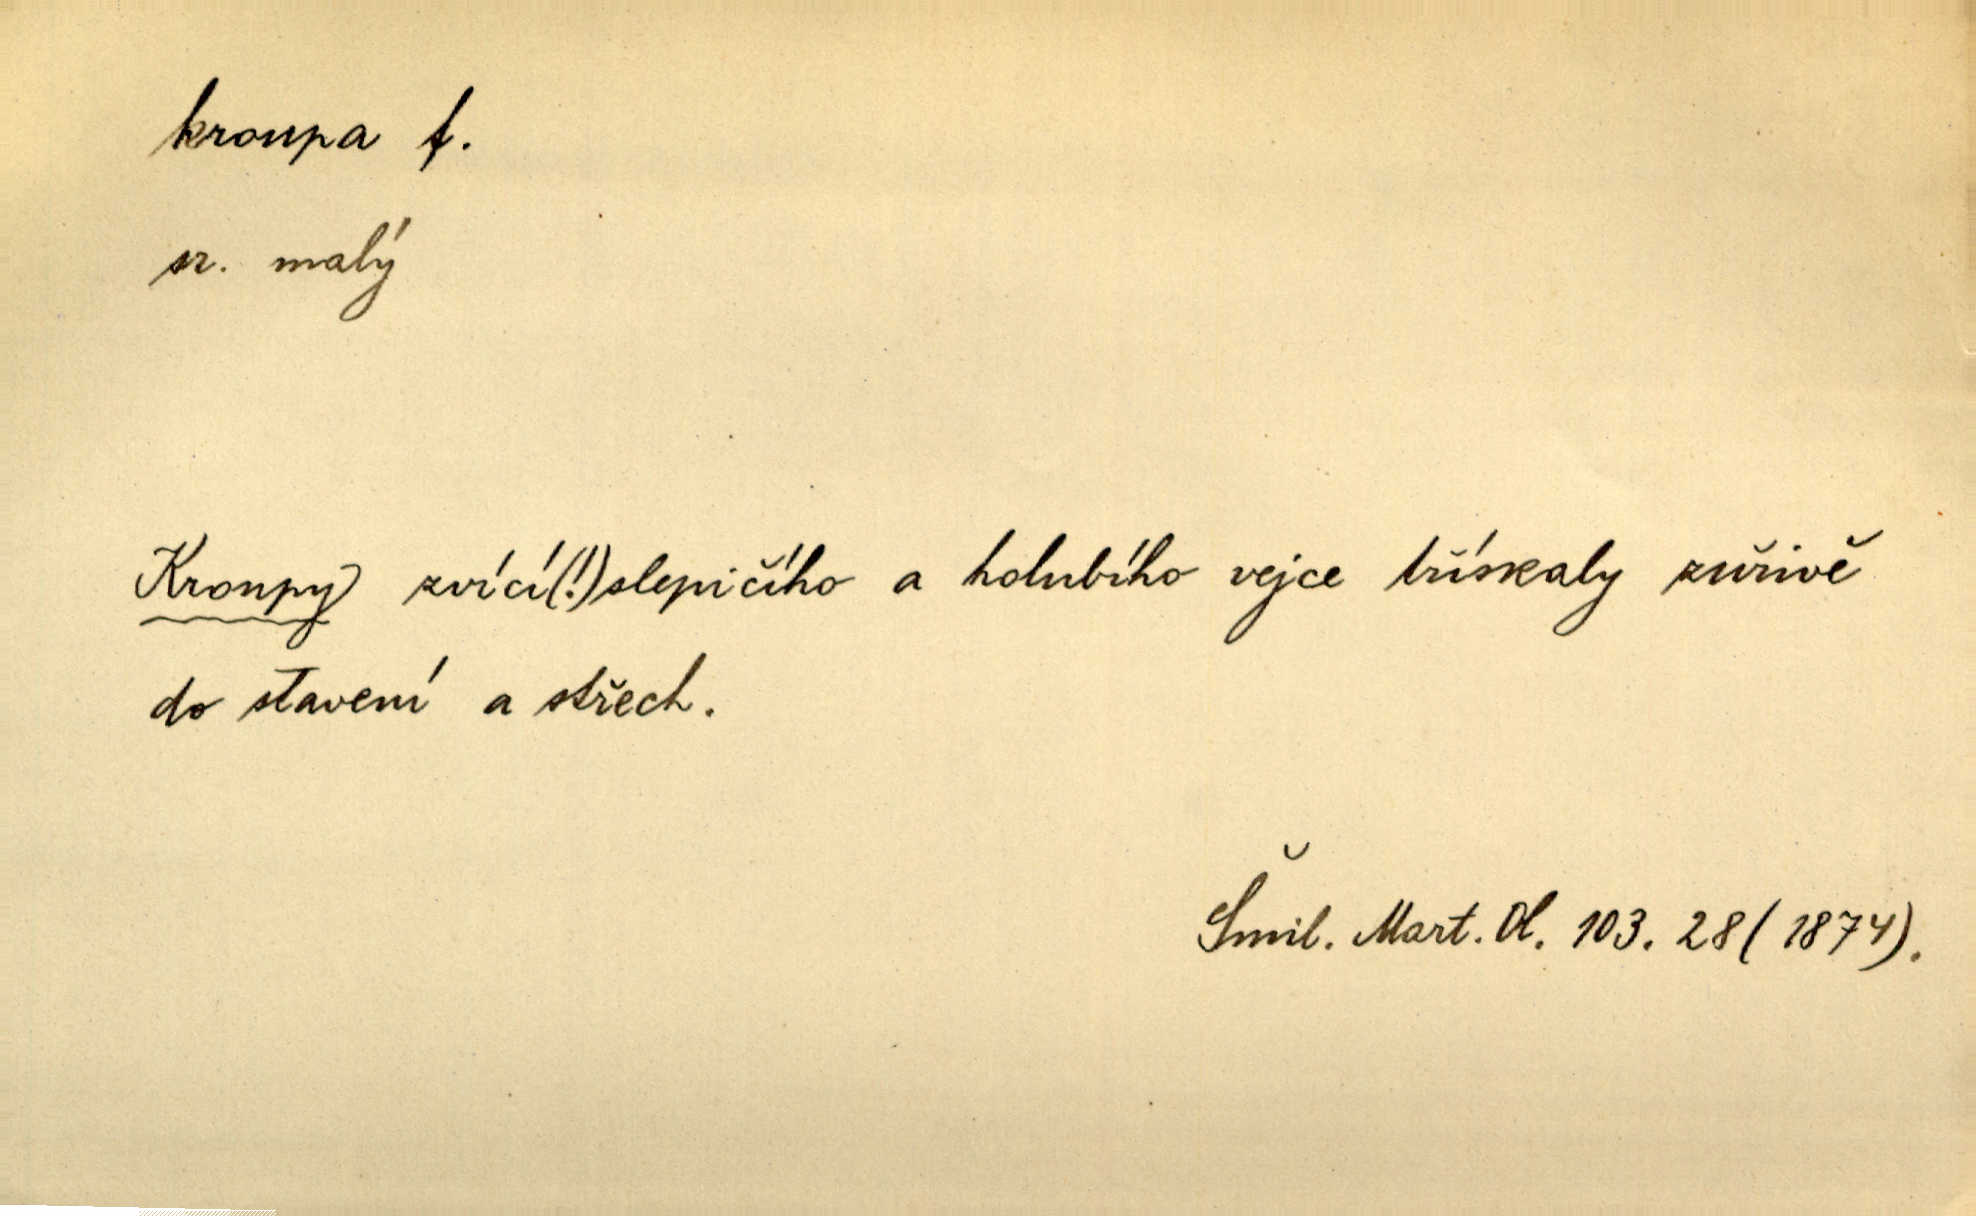 kroupa f.
sr. malý
Kroupy zvící(!) slepičího a holubího vejce třískaly zuřivě
do stavení a střech.
Šmil. Mart. Ol. 103. 28 (1874).